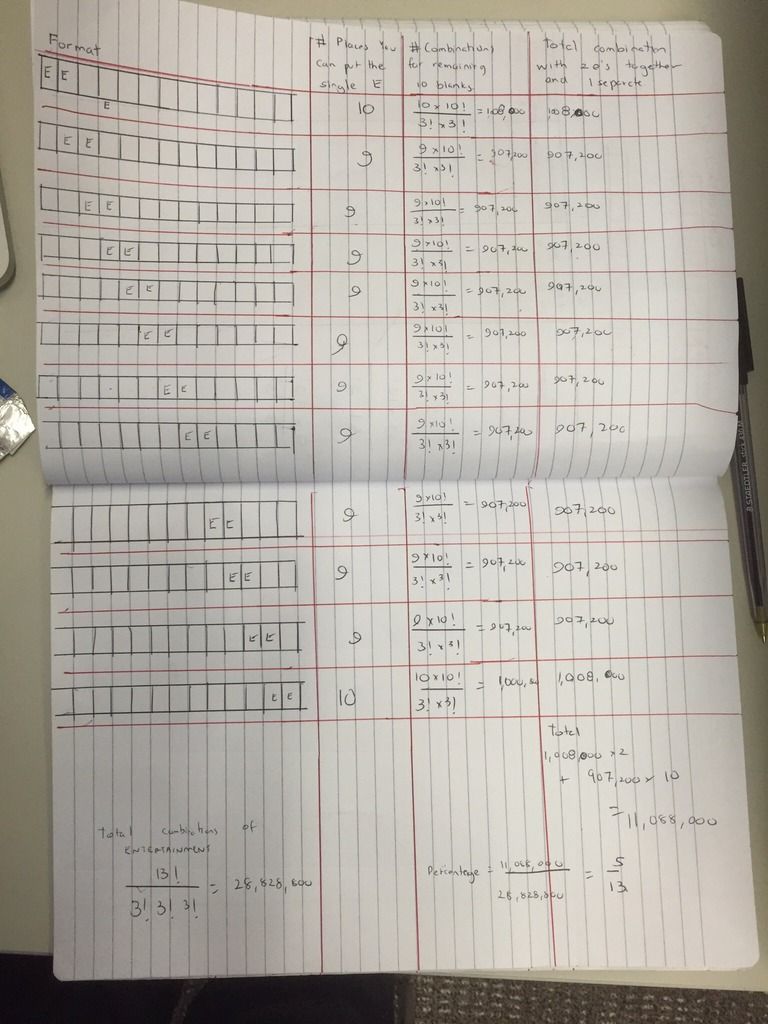 Format
# Places You
can put the
single E
# Combinations
for remaining
10 blanks
Total combination
with 2e's together
and 1 separate
E E
E
10
10 × 10!
3! × 3!
= 1,008,000
1,008,000
E E
9
9 × 10!
3! × 3!
= 907,200
907,200
E E
9
9 × 10!
3! × 3!
= 907,200
907,200
E E
9
9 × 10!
3! × 3!
= 907,200
907,200
E E
9
9 × 10!
3! × 3!
= 907,200
907,200
E E
9
9 × 10!
3! × 3!
= 907,200
907,200
E E
9
9 × 10!
3! × 3!
= 907,200
907,200
E E
9
9 × 10!
3! × 3!
= 907,200
907,200
E E
9
9 × 10!
3! × 3!
= 907,200
907,200
E E
9
9 × 10!
3! × 3!
= 907,200
907,200
E E
9
9 × 10!
3! × 3!
= 907,200
907,200
E E
10
10 × 10!
3! × 3!
1,008,000
Total
1,008,000 × 2
+ 907,200 × 10
= 11,088,000
Total combinations of
ENTERTAINMENT
13!
3! 3! 3!
= 28,828,800
Percentage =
11,088,000
28,828,800
=
5
13
STAEDTLER